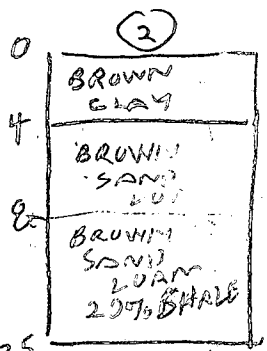 2
0
BROWN
CLAY
4
BROWN
SAND
8
BROWN
SAND
LOAM
20% SHALE